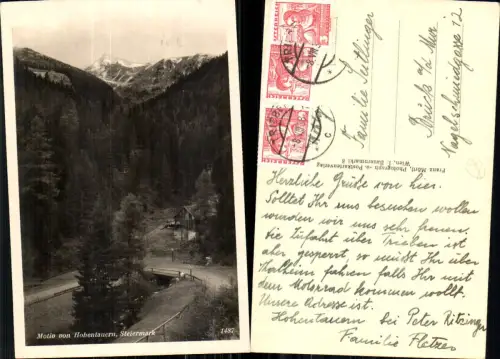 Motiv von Hohentauern, Steiermark
1487
ÖSTERREICH
Familie
Brück a/d Mur
Nagelschmiedgasse 12
Franz Mörtl, Photograph- u. Postkartenverlag
Wien, I. Bauernmarkt 8
Herzliche Grüße von hier.
Solltet Ihr uns besuchen wollen
würden wir uns sehr freuen.
Die Zufahrt über Trieben ist
aber gesperrt, so müßt Ihr über
fahren falls Ihr mit
dem Motorrad kommen wollt.
Unsere Adresse ist.
Hohentauern bei Peter
Familie